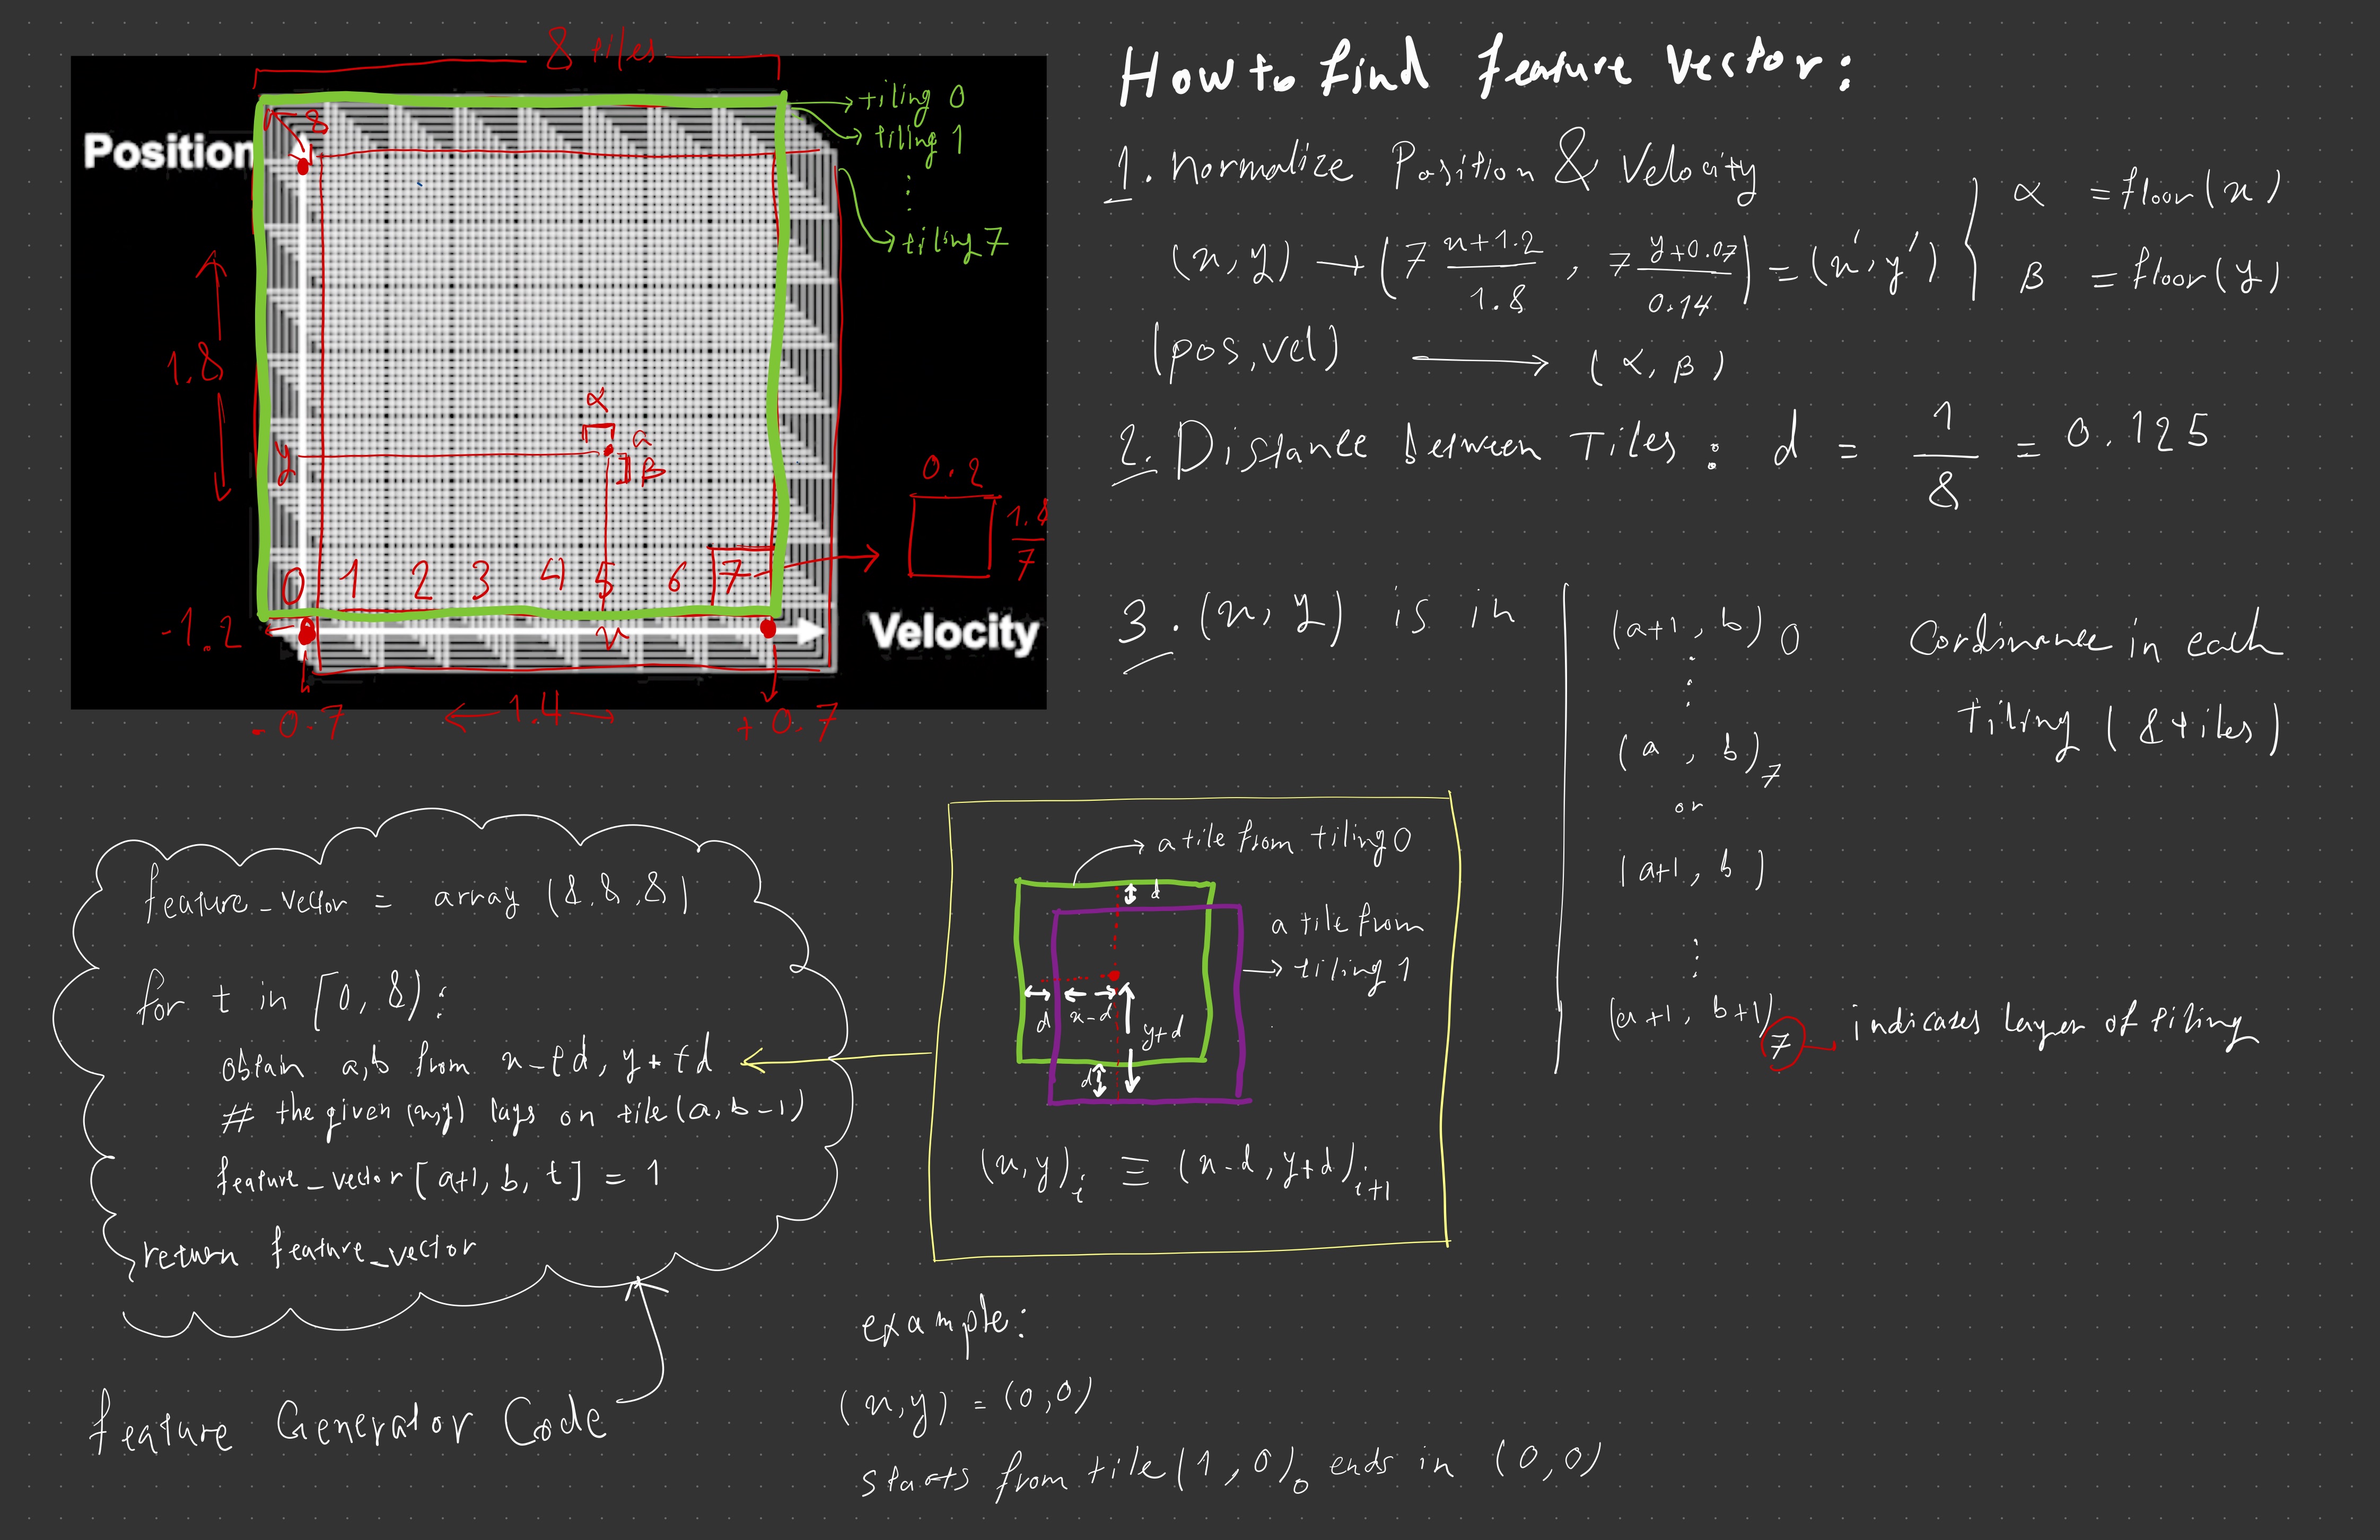 8 tiles
tiling 0
tiling 1
⋮
tiling 7
Position
8
1.8
α
a
y
β
0.2
1.8/7
0 1 2 3 4 5 6 7
-1.2
x
Velocity
-0.7
1.4
+0.7
How to find feature vector:
1. Normalize Position & Velocity
(x, y) → (7 (x+1.2)/1.8 , 7 (y+0.07)/0.14) = (x', y')
α = floor(x)
β = floor(y)
(pos, vel) → (α, β)
2. Distance between Tiles : d = 1/8 = 0.125
3. (x, y) is in
(a+1, b) 0
⋮
(a, b) 7
or
(a+1, b)
⋮
(a+1, b+1) 7 indicates layer of tiling
Cordinance in each
tiling (8 tiles)
feature_vector = array (8,8,8)
for t in [0, 8):
obtain a,b from x-td, y+td
# the given (x,y) lays on tile(a, b-1)
feature_vector[a+1, b, t] = 1
return feature_vector
feature Generator Code
a tile from tiling 0
d
a tile from
tiling 1
d
x-d
y+d
d
(x, y)i ≡ (x-d, y+d)i+1
example:
(x,y) = (0,0)
starts from tile (1, 0)0 ends in (0,0)